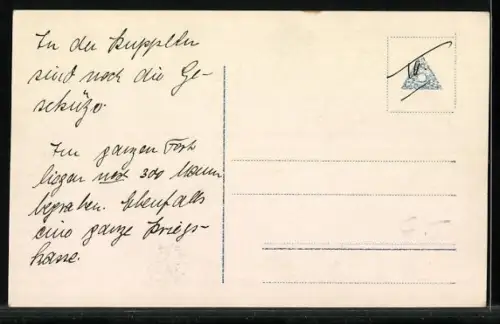 In den Kuppeln
sind noch die Ge-
schütze.
Im ganzen Fort
liegen noch 300 Mann
begraben. Ebenfalls
eine ganze Kriegs-
kasse.